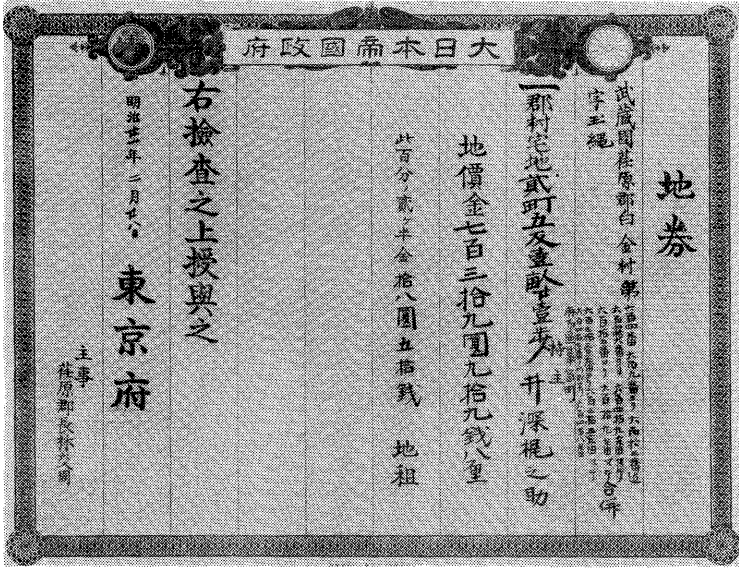 大日本帝國政府
地券
武蔵國荏原郡白金村第
字玉縄
合併
一郡村宅地貳町五反壹畝廿壹歩
持主
井深梶之助
地價金七百三拾九圓九拾九銭八厘
此百分ノ貳ヶ半金拾八圓五拾銭 地租
右檢査之上授與之
明治廿一年二月廿八日 東京府
主事
荏原郡長林交周